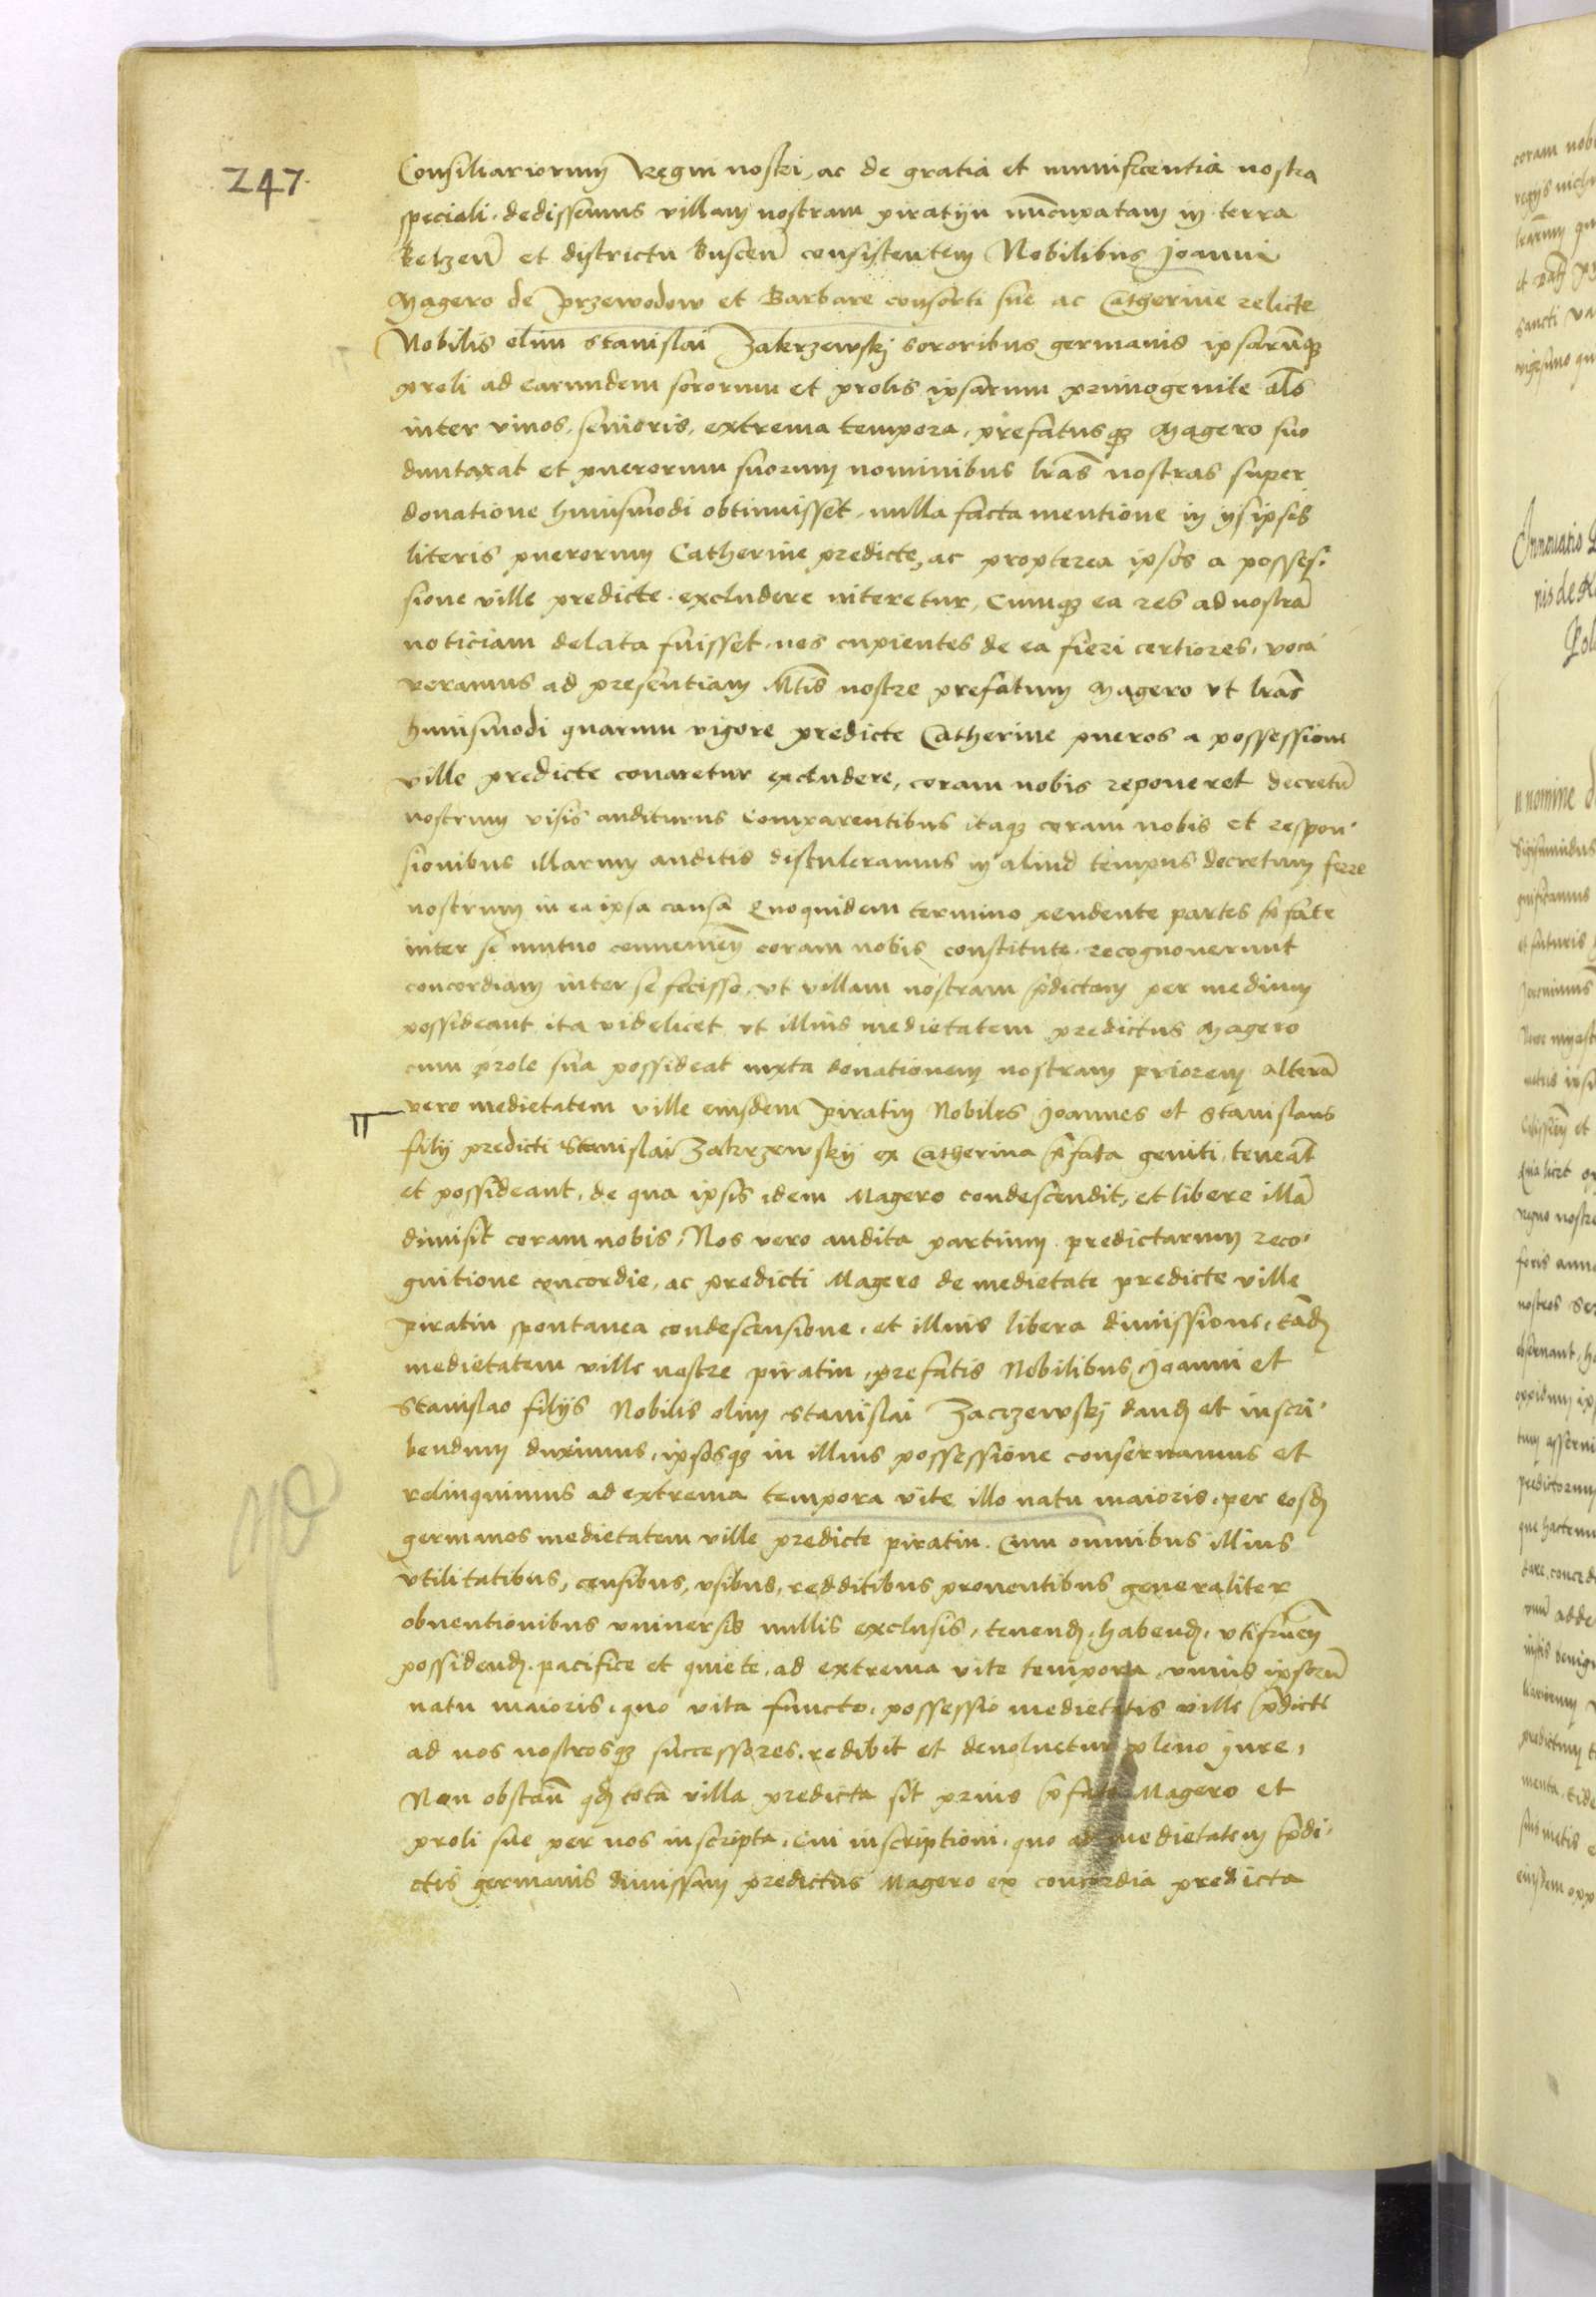 247
Consiliariorum Regni nostri, ac de gratia et munificentia nostra
speciali. dedissemus villam nostram piratijn nūcupatam in terra
Belzen̄ et districtu Buscen̄ consistentem Nobilibus Joanni
Magero de Przewodow et Barbare consorti sue ac Catherine relicte
Nobilis olim Stanislai Zakrzewskj sororibus germanis ipsarūqȝ
proli ad earundem sororum et prolis ipsarum primogenite als
inter viuos, senioris, extrema tempora, prefatusqȝ Magero suo
duntaxat et puerorum suorum nominibus l̄ras nostras super
donatione huiusmodi obtinuisset, nulla facta mentione in ijsipsis
literis puerorum Catherine predicte, ac propterea ipsos a posses-
sione ville predicte excludere niteretur, Cumqȝ ea res ad nostrā
noticiam delata fuisset, nos cupientes de ea fieri certiores, voca
veramus ad presentiam M̄tis nostre prefatum Magero vt l̄ras
huiusmodi quarum vigore predicte Catherine pueros a possessione
ville predicte conaretur excludere, coram nobis reponeret decretū
nostrum visis auditurus Comparentibus itaqȝ coram nobis et respon-
sionibus illarum auditis distuleramus in aliud tempus decretum ferre
nostrum in ea ipsa causa Quoquidem termino pendente partes p̄fate
inter se mutuo conuenien̄ coram nobis constitute, recognouerunt
concordiam inter se fecisse, vt villam nostram p̄dictam per medium
possideant ita videlicet vt illius medietatem predictus Magero
cum prole sua possideat iuxta donationem nostram priorem alterā
vero medietatem ville eiusdem Piratin Nobiles Joannes et Stanislaus
filij predicti Stanislai Zakrzewskij ex Catherina p̄fata geniti, teneāt
et possideant, de qua ipsis idem Magero condescendit, et libere illā
dimisit coram nobis, Nos vero audita partium predictarum reco-
gnitione concordie, ac predicti Magero de medietate predicte ville
piratin spontanea condescensione, et illius libera dimissione, eād
medietatem ville nostre piratin, prefatis Nobilibus Joanni et
Stanislao filijs Nobilis olim Stanislai Zacrzewskj dand et inscri-
bendum duximus, ipsosqȝ in illius possessione conseruamus et
relinquimus ad extrema tempora vite illo natu maioris, per eosd
germanos medietatem ville predicte piratin. Cum omnibus illius
vtilitatibus, censibus, vsibus, redditibus prouentibus generaliter
obuentionibus vniuersis nullis exclusis, tenend, habend, vtifruen̄
possidend, pacifice et quiete, ad extrema vite tempora vnius ipsorū
natu maioris, quo vita functo, possessio medietatis ville p̄dicte
ad nos nostrosqȝ successores, redibit et deuoluetur pleno jure,
Non obstan̄ qd tota villa predicta sit prius p̄fato Magero et
proli sue per nos inscripta, Cui inscriptioni, quo ad medietatem p̄di-
ctis germanis dimissam predictus Magero ex concordia predicta